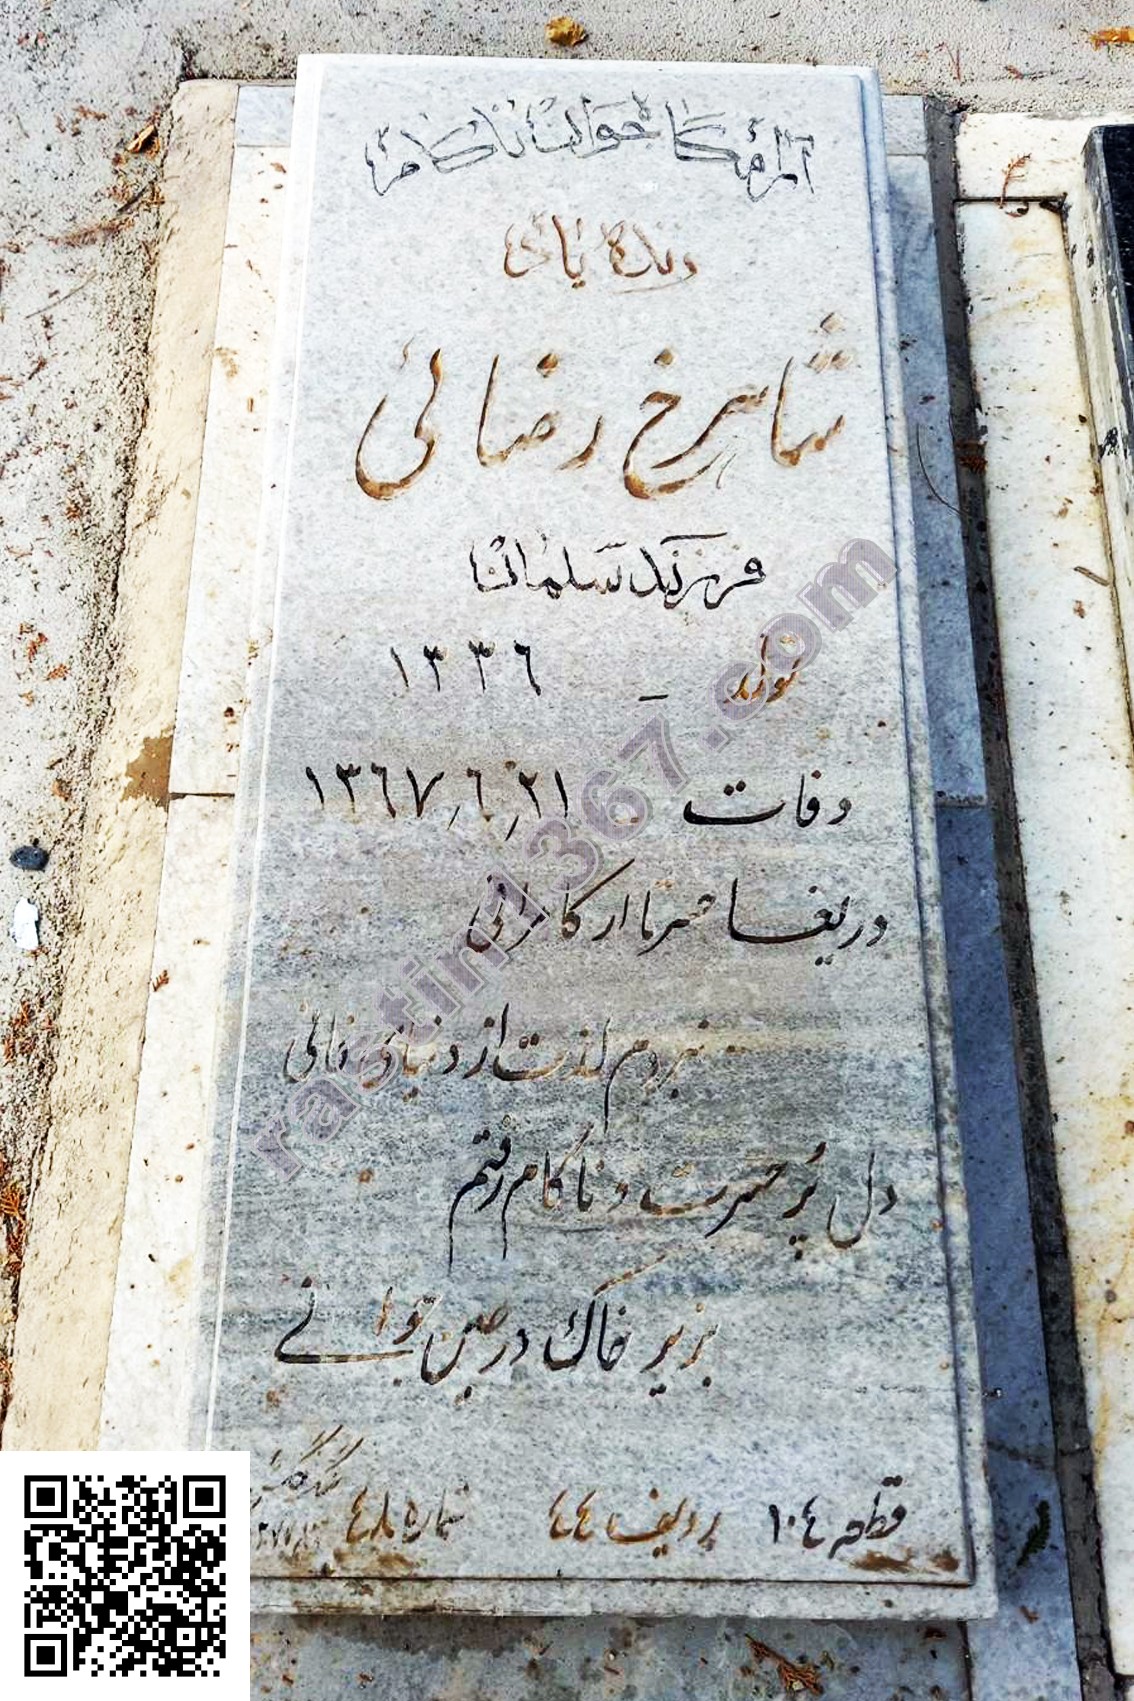 آرامگاه جوان ناکام
زنده یاد
شاهرخ رضائی
فرزند سلمان
تولد - ۱۳۳۶
وفات ۲۱٫۶٫۱۳۶۷
دریغا حسرتا از کامرانی
نبردم لذت از دنیای فانی
دل پر حسرت و ناکام رفتم
بزیر خاک در عین جوانی
قطعه ۱۰۴ ردیف ۴۴ شماره ۴۸
rastin1367.com